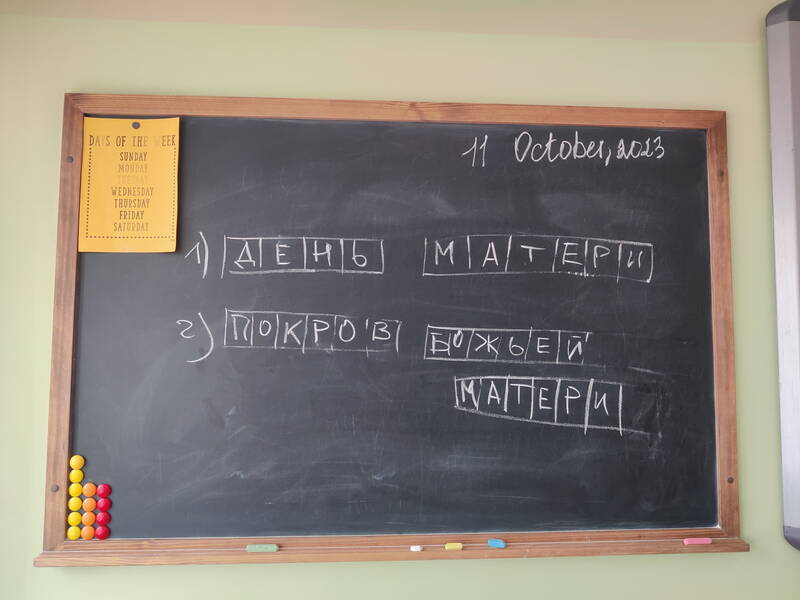 DAYS OF THE WEEK
SUNDAY
MONDAY
TUESDAY
WEDNESDAY
THURSDAY
FRIDAY
SATURDAY
11 October, 2023
1) ДЕНЬ МАТЕРИ
2) ПОКРОВ БОЖЬЕЙ
МАТЕРИ